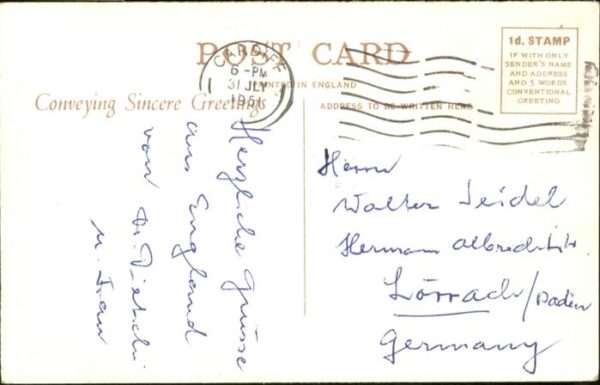 POST CARD
PRINTED IN ENGLAND
Conveying Sincere Greetings
ADDRESS TO BE WRITTEN HERE
CARDIFF
6 - PM
31 JLY
1961
1d. STAMP
IF WITH ONLY
SENDER'S NAME
AND ADDRESS
AND 5 WORDS
CONVENTIONAL
GREETING
Herzliche Grüsse
aus England
von Dr. Pietsch
u. Frau
Herrn
Walter Seidel
Hermann Albrechtstr.
Lörrach/Baden
Germany